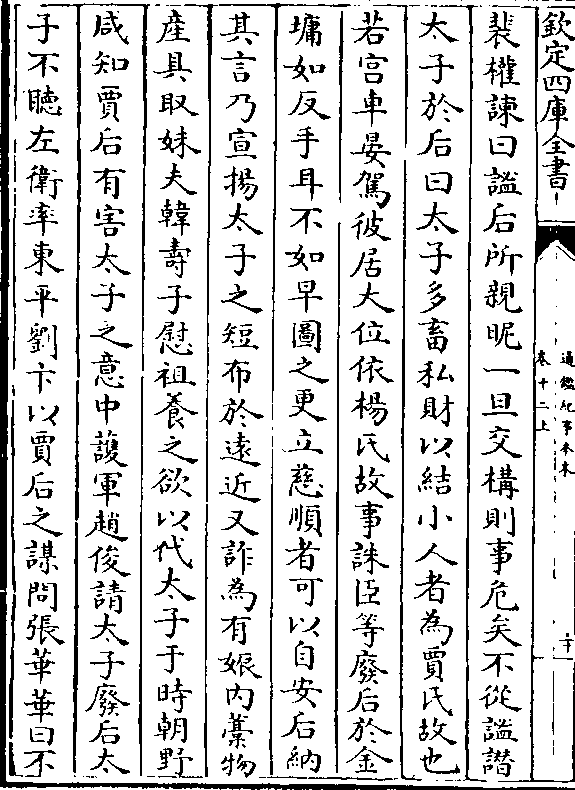 欽定四庫全書
通鑑紀事本末
卷十二上
二十
裴權諫曰謐后所親昵一旦交構則事危矣不從謐譖
太子於后曰太子多畜私財以結小人者為賈氏故也
若宫車晏駕彼居大位依楊氏故事誅臣等廢后於金
墉如反手耳不如早圖之更立慈順者可以自安后納
其言乃宣揚太子之短布於遠近又詐為有娠内藳物
産具取妹夫韓壽子慰祖養之欲以代太子于時朝野
咸知賈后有害太子之意中護軍趙俊請太子廢后太
子不聴左衛率東平劉卞以賈后之謀問張華華曰不